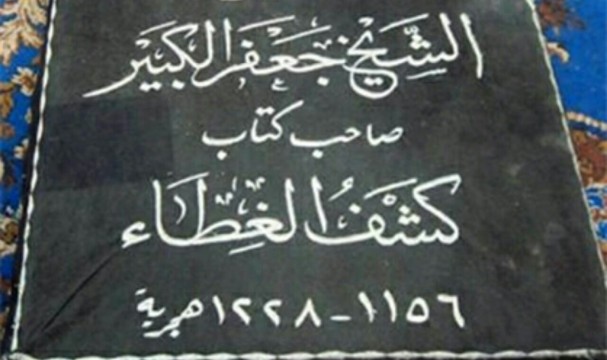 الشيخ جعفر الكبير
صاحب كتاب
كشف الغطاء
١١٥٦-١٢٢٨ هجرية